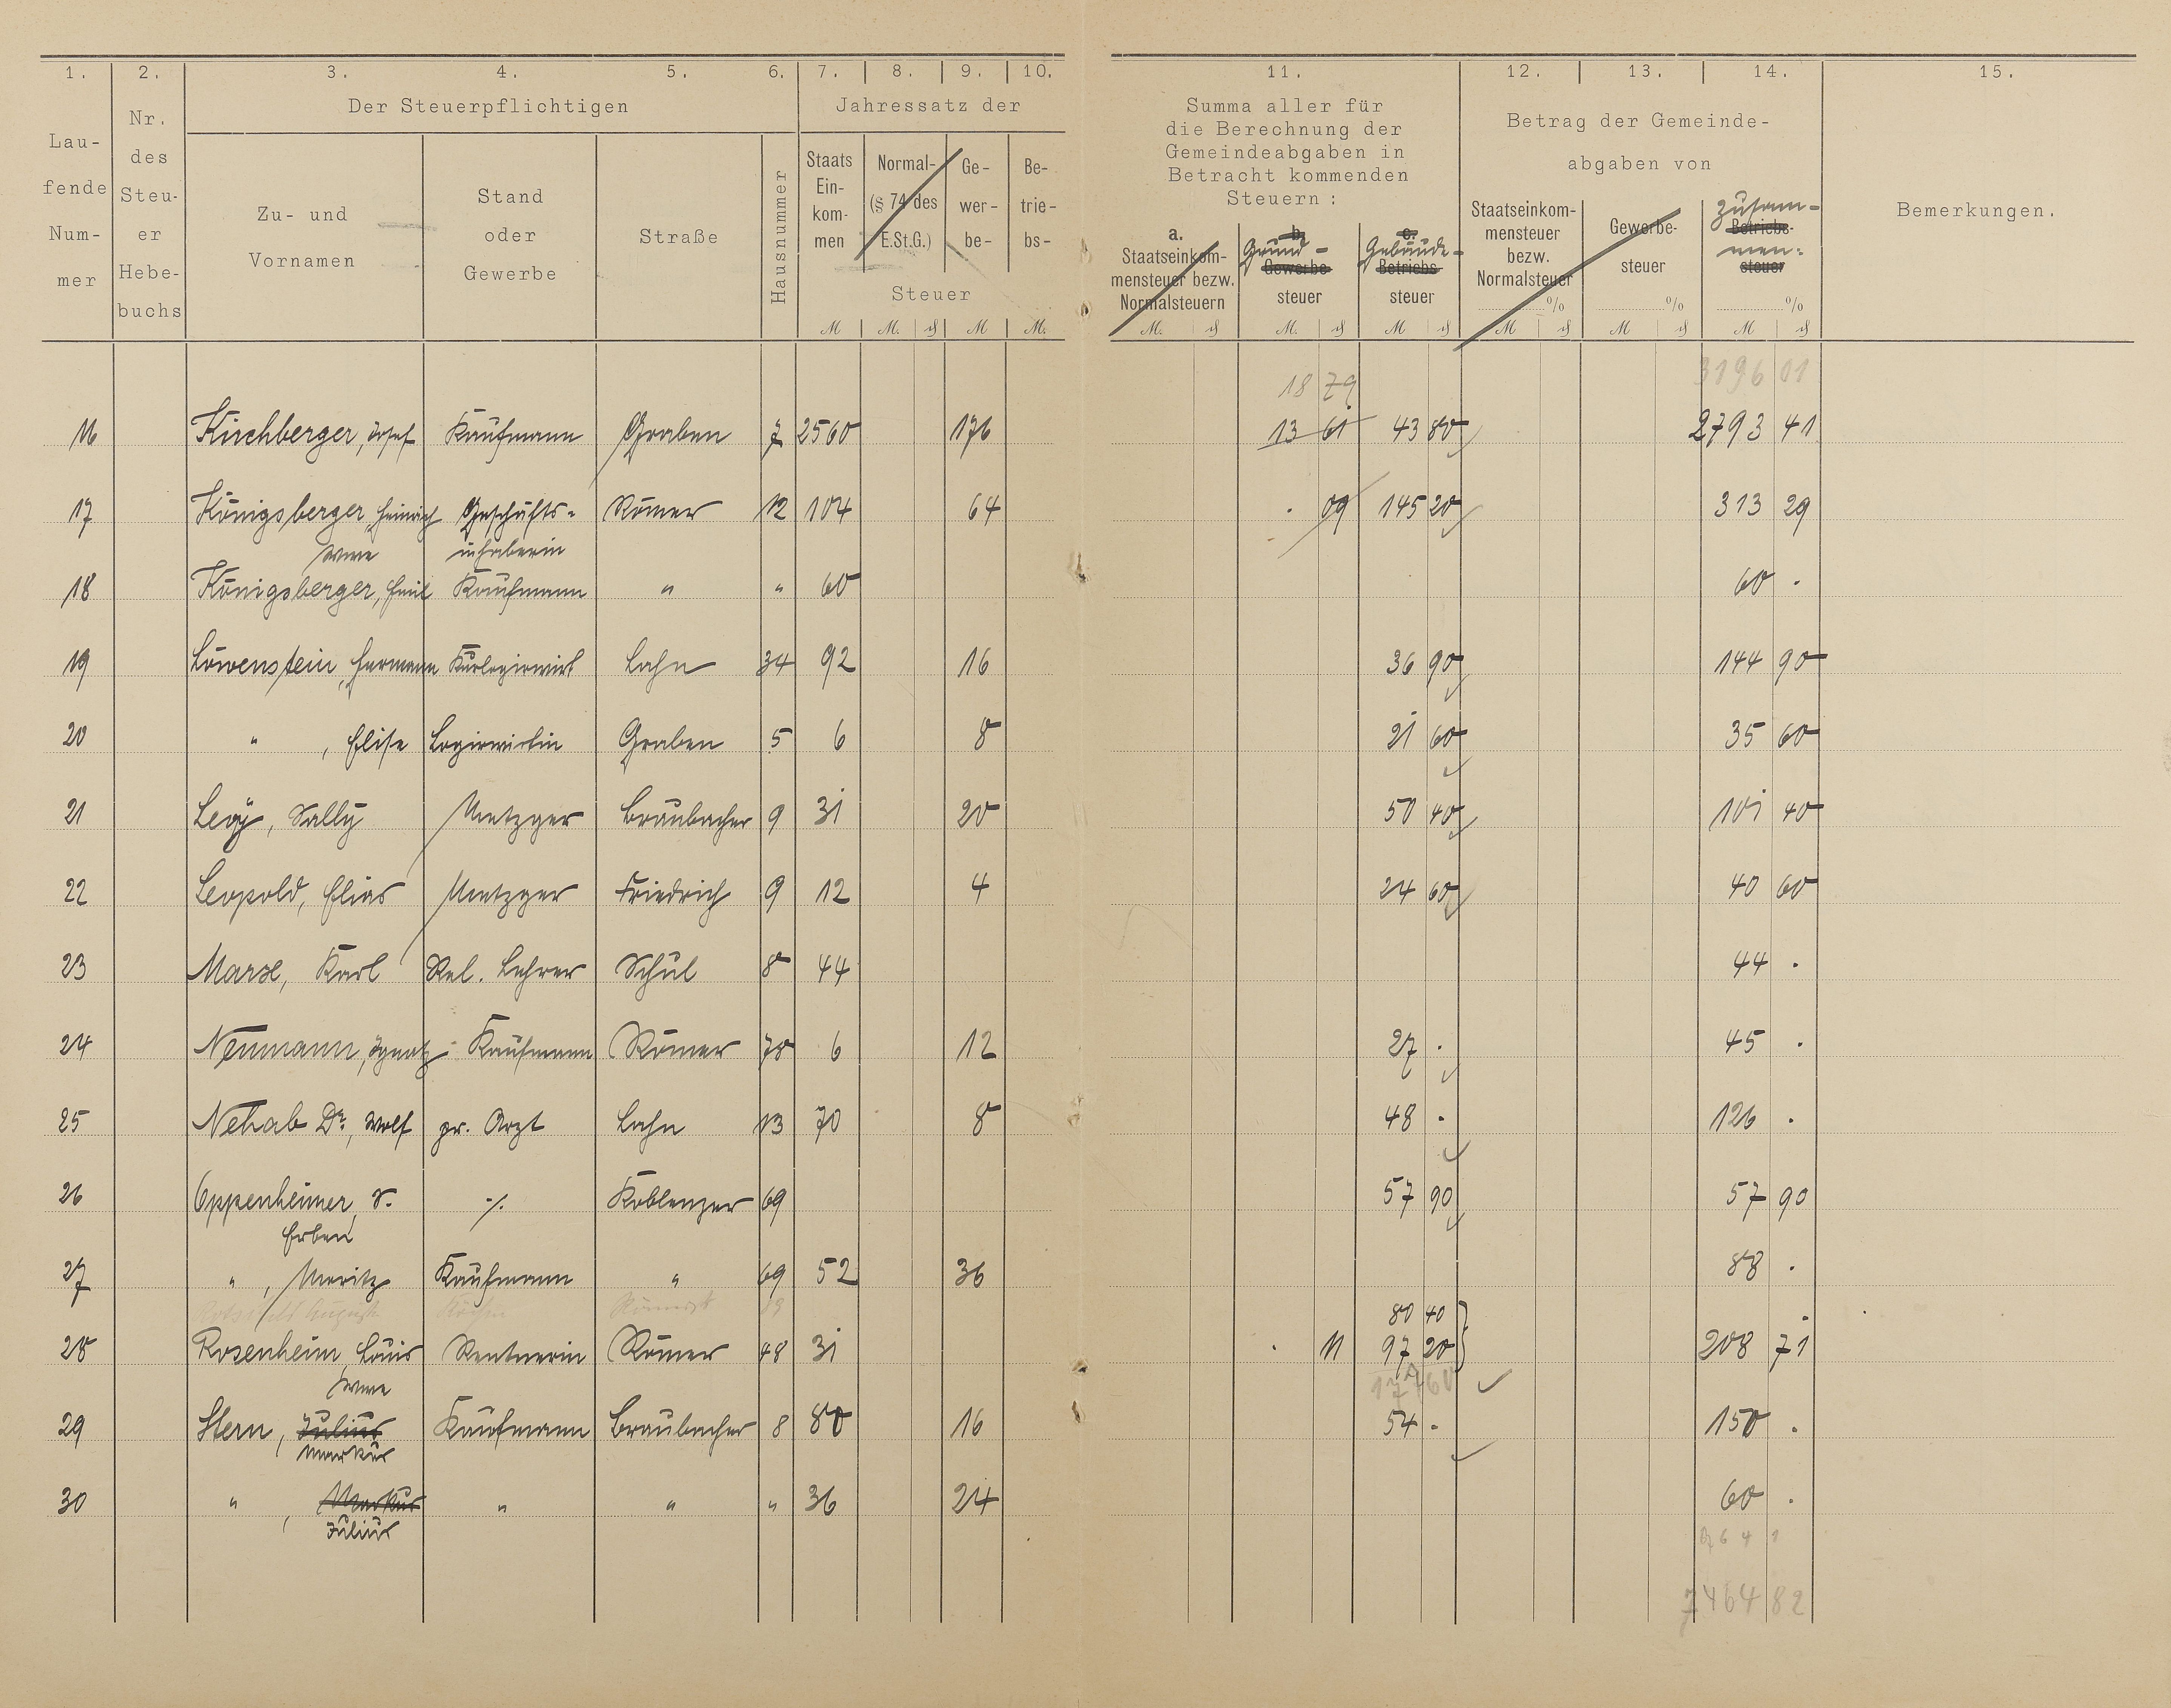 1. 2. 3. 4. 5. 6. 7. 8. 9. 10. 11. 12. 13. 14. 15.
Laufende Nummer
Nr. des Steuer Hebebuchs
Der Steuerpflichtigen
Zu- und Vornamen
Stand oder Gewerbe
Straße
Hausnummer
Jahressatz der
Staats Einkommen
Normal- (§ 74 des E.St.G.)
Gewerbe-
Betriebs-
Steuer
M M. ₰ M M.
Summa aller für
die Berechnung der
Gemeindeabgaben in
Betracht kommenden
Steuern :
a. Staatseinkommensteuer bezw. Normalsteuern
b. Grund- Gewerbe steuer
c. Gebäude- Betriebs steuer
M. ₰ M. ₰ M ₰
Betrag der Gemeinde-
abgaben von
Staatseinkommensteuer bezw. Normalsteuer %
Gewerbesteuer %
Zusammen: Betriebs- steuer %
M ₰ M ₰ M ₰
Bemerkungen.
18 79 3196 01
16 Kirchberger, Josef Kaufmann Graben 7 2560 176 13 61 43 80 2793 41
17 Königsberger, Heinrich Geschäfts- Römer 12 104 64 . 09 145 20 313 29
Wwe inhaberin
18 Königsberger, Emil Kaufmann " " 60 60 .
19 Löwenstein, Hermann Kurlogirwirt Lahn 34 92 16 36 90 144 90
20 " , Elise Logirwirtin Graben 5 6 8 21 60 35 60
21 Levÿ, Sally Metzger Braubacher 9 31 20 50 40 101 40
22 Leopold, Elias Metzger Friedrich 9 12 4 24 60 40 60
23 Marxe, Karl Rel. Lehrer Schul 8 44 44 .
24 Neumann, Ignatz Kaufmann Römer 70 6 12 27 . 45 .
25 Nehab Dr., Wolf pr. Arzt Lahn 13 70 8 48 . 126 .
26 Oppenheimer, S. ·/. Koblenzer 69 57 90 57 90
Erben
27 " , Moritz Kaufmann " 69 52 36 88 .
August Römerst
80 40
28 Rosenheim, Louis Rentnerin Römer 48 31 . 11 97 20 208 71
Wwe 177 60
29 Stern, Julius Kaufmann Braubacher 8 80 16 54 - 150 .
Markus
30 " , Markus " " " 36 24 60 .
Julius
7464 82